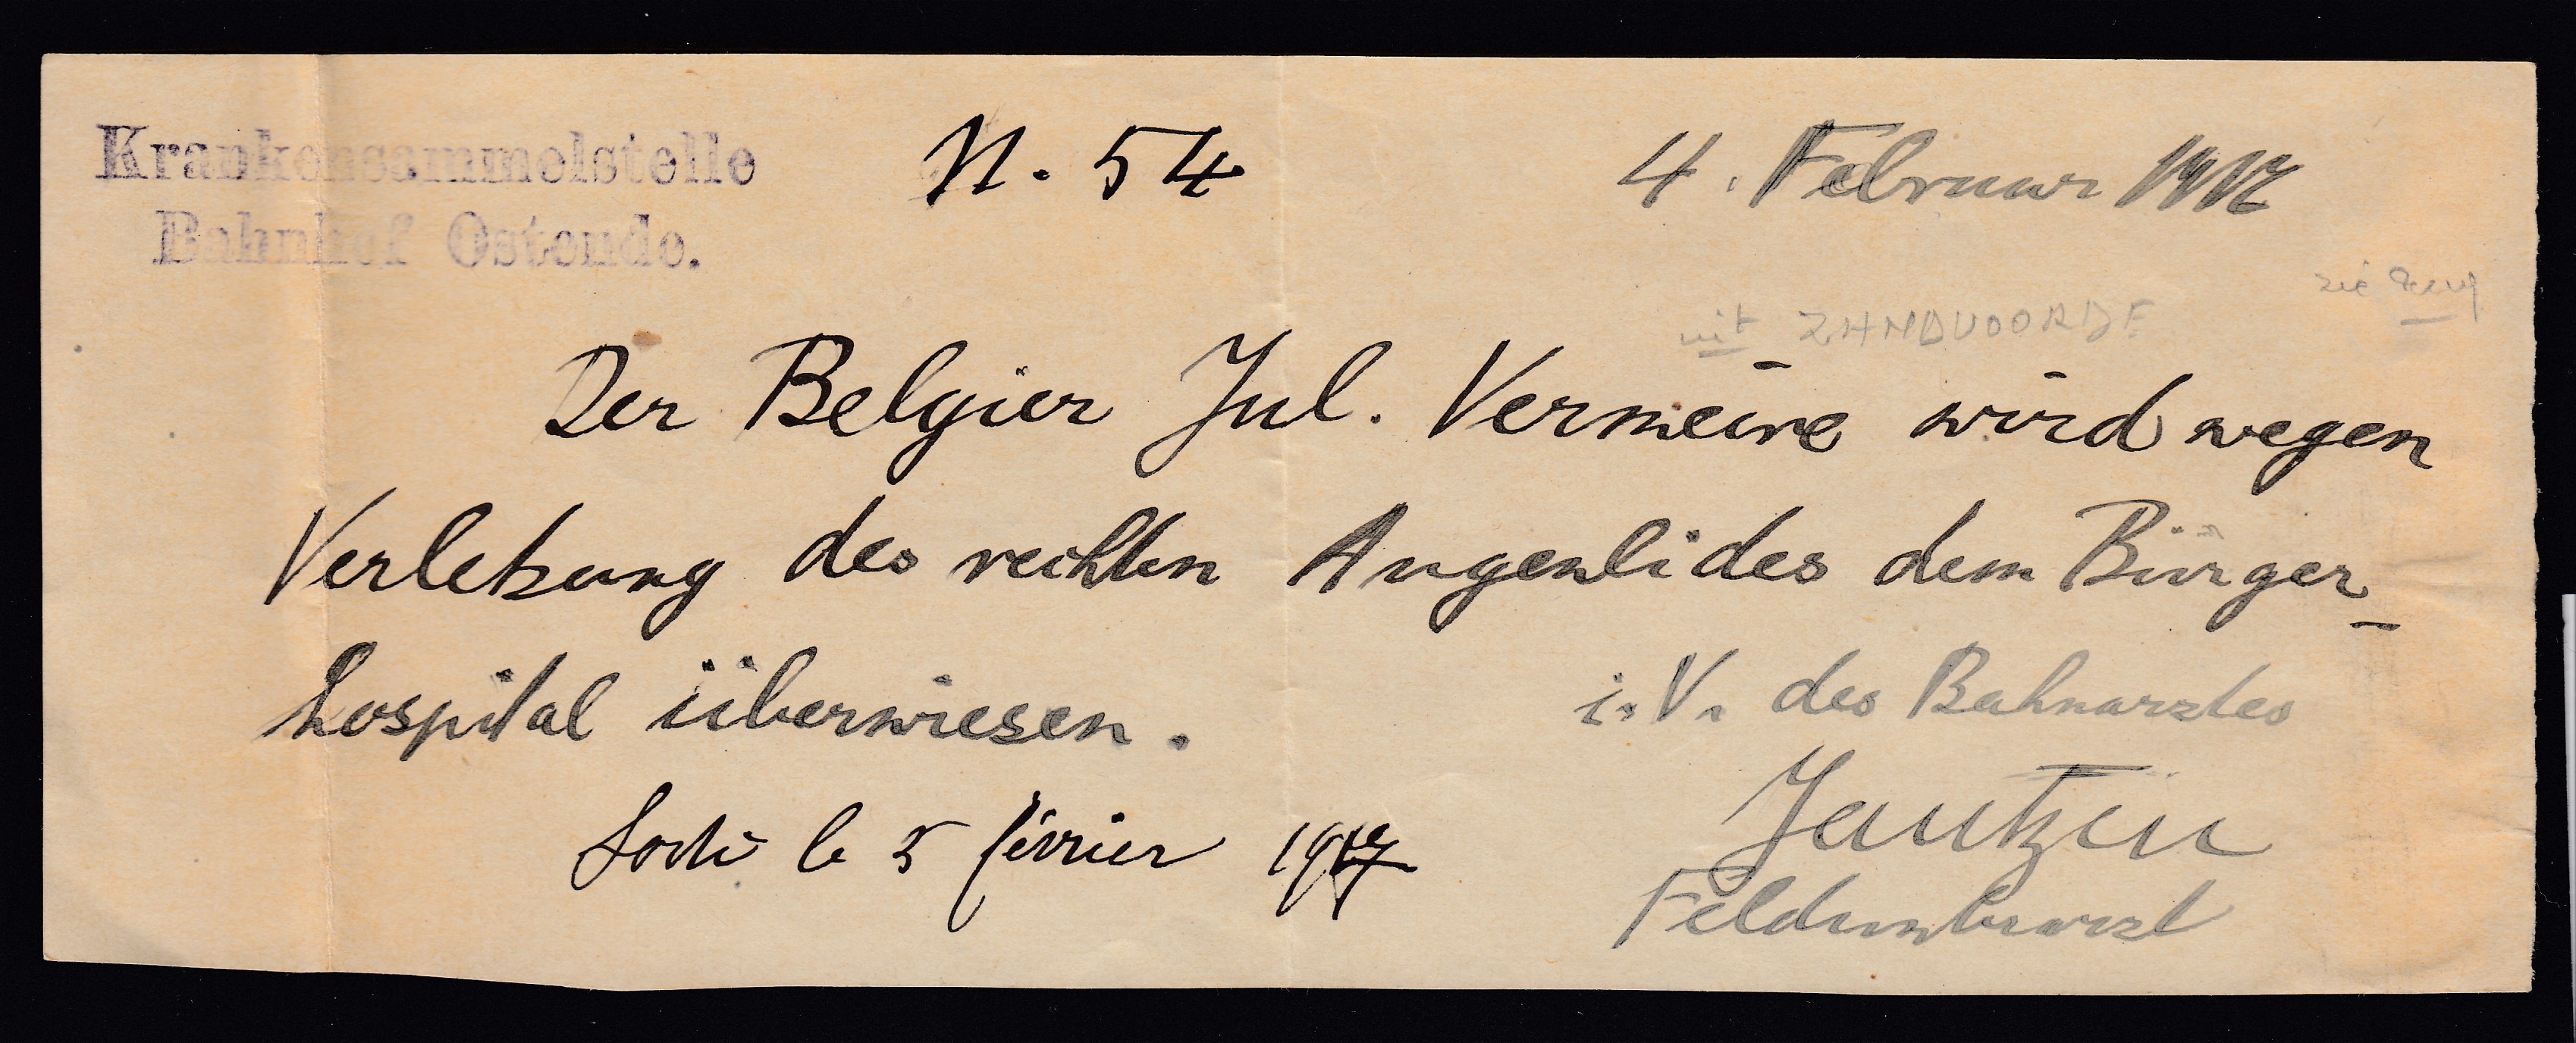 Krankensammelstelle
Bahnhof Ostende.
N. 54
4. Februar 1917
zie
uit ZANDVOORDE
Der Belgier Jul. Vermeire wird wegen
Verletzung des rechten Augenlides dem Bürger-
hospital überwiesen.
i. V. des Bahnarztes
Jantzen
Feldunterarzt
Sorti le 5 février 1917